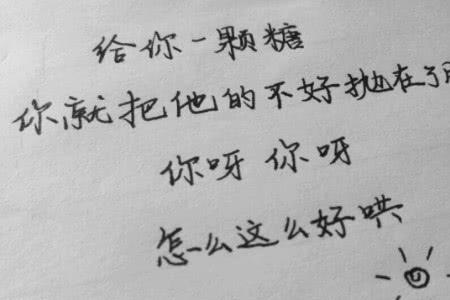 给你一颗糖
你就把他的不好抛在了
你呀 你呀
怎么这么好哄